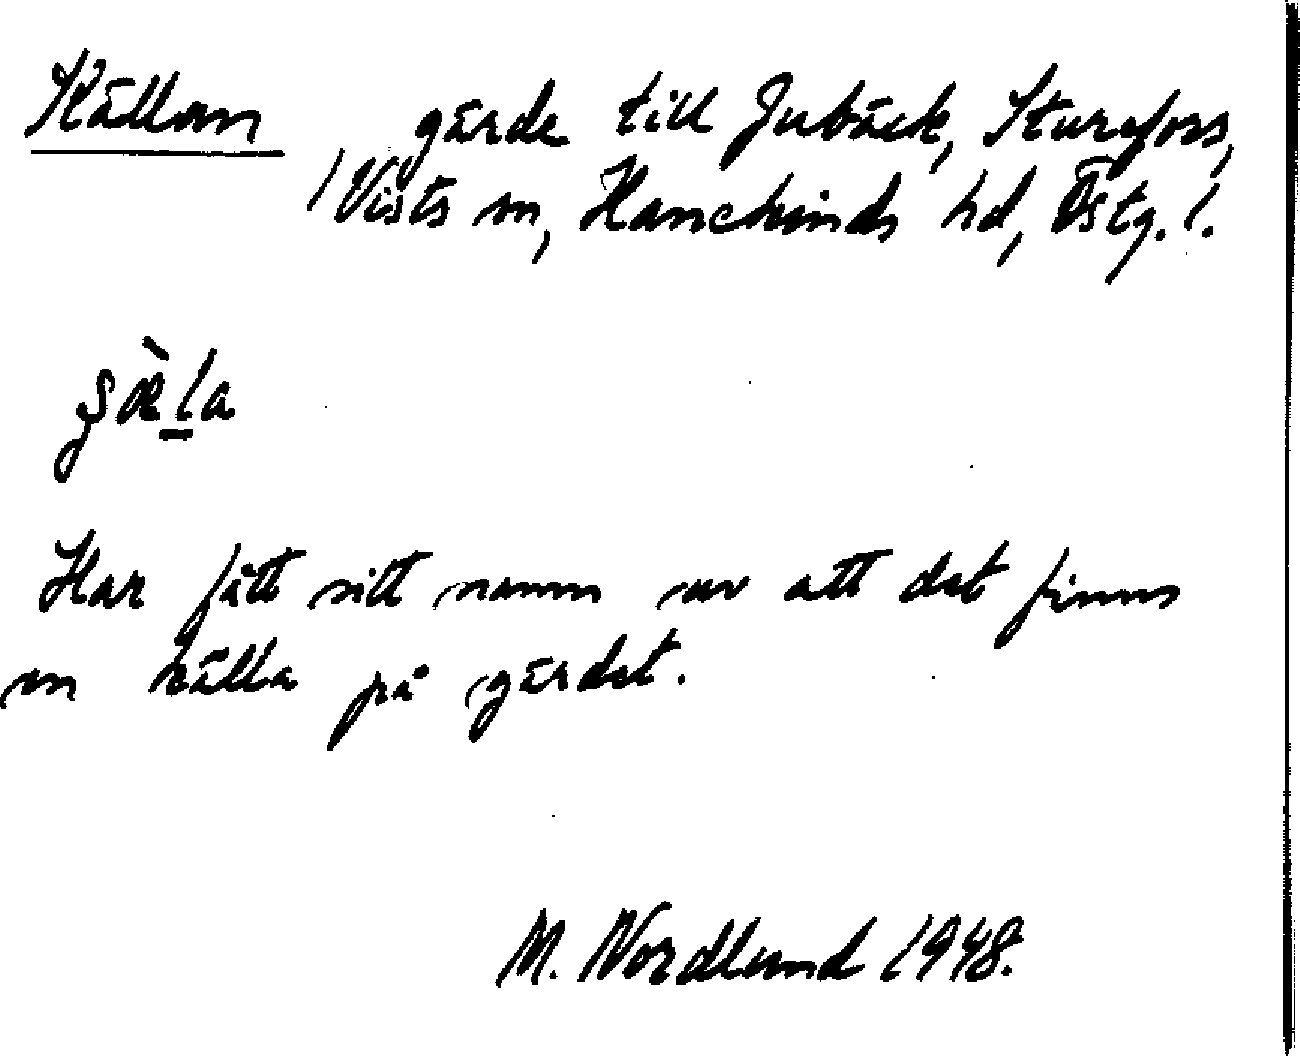 Källan gärde till Jubäck, Sturefors,
Vists sn, Hanekinds hd, Östg. l.
Har fått sitt namn av att det finns
en källa på gärdet.
M. Nordlund 1948.